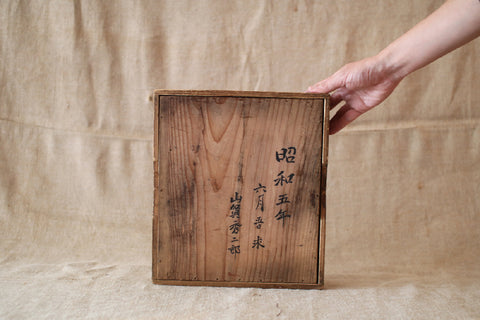 昭和五年
六月吾求
山賀秀二郎